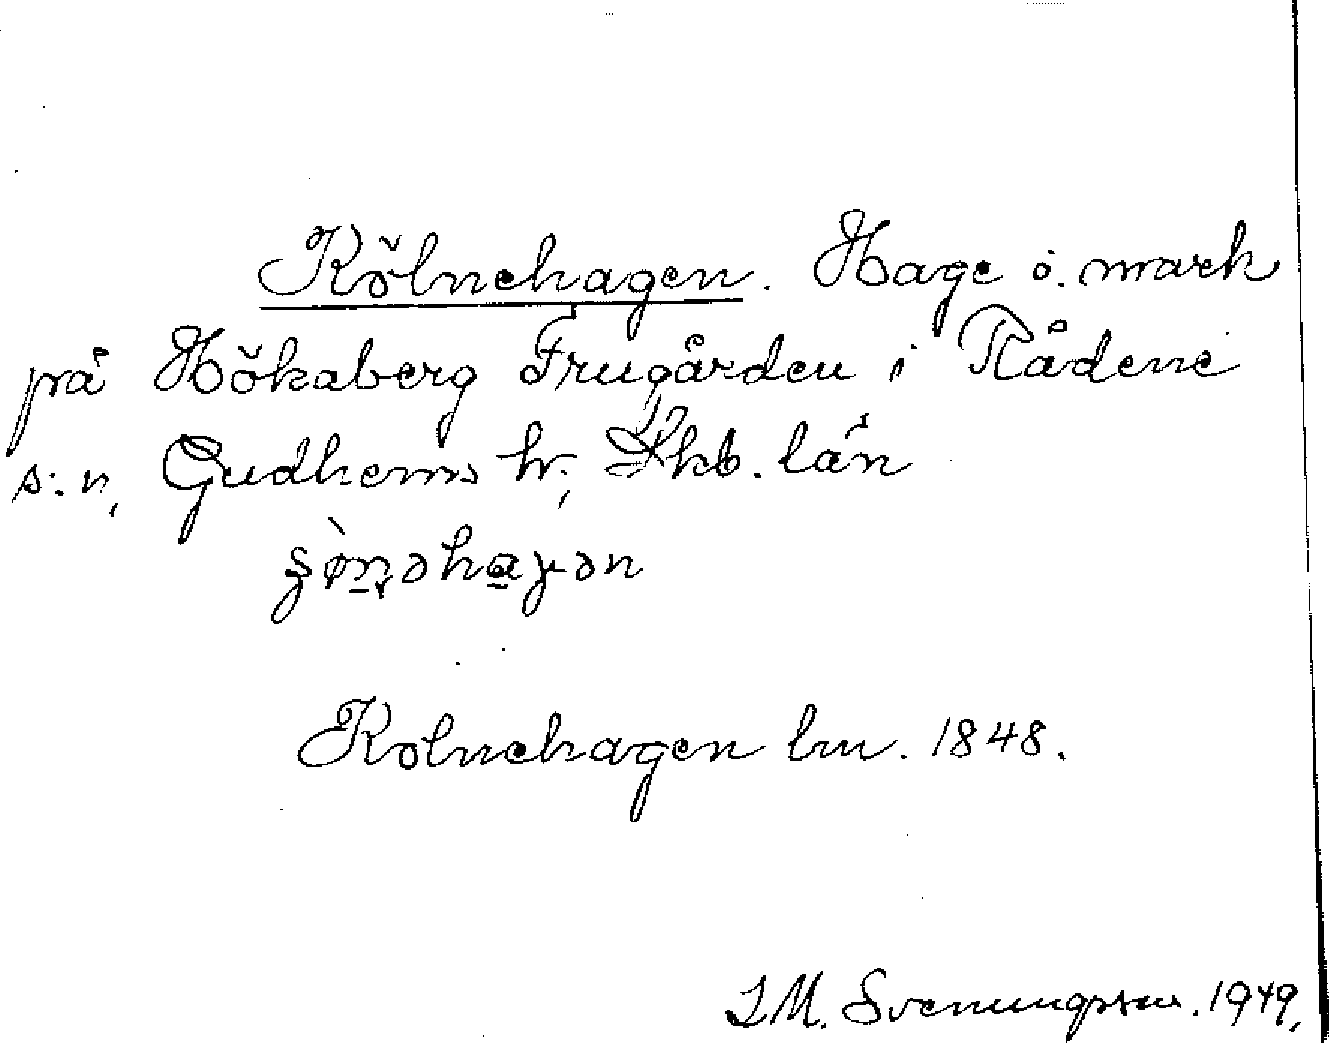 Kölnehagen. Hage o. mark
på Hökaberg Frugården i Rådene
s:n, Gudhems hr; Skb. län
Kolnehagen lm. 1848.
I M. Svenungsson. 1949.